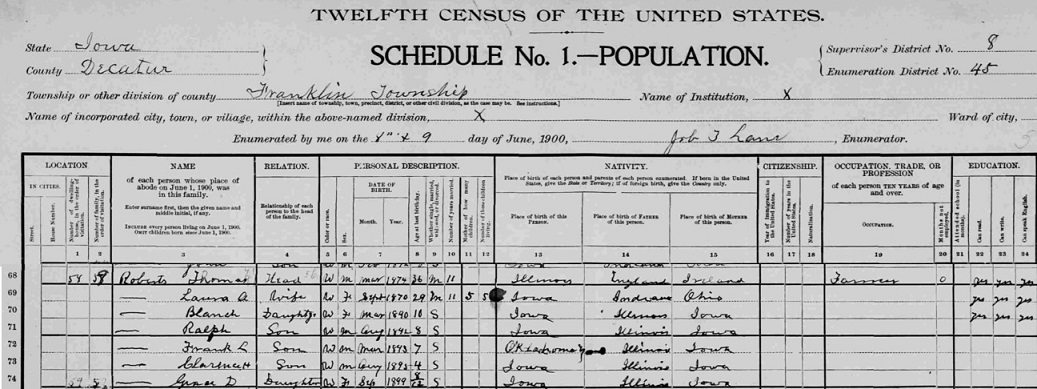 TWELFTH CENSUS OF THE UNITED STATES.
State Iowa
County Decatur
SCHEDULE No. 1.—POPULATION.
Supervisor's District No. 8
Enumeration District No. 45
Township or other division of county Franklin Township Name of Institution, X
[Insert name of township, town, precinct, district, or other civil division, as the case may be. See instructions.]
Name of incorporated city, town, or village, within the above-named division, X Ward of city,
Enumerated by me on the 8" & 9 day of June, 1900, Job T Lane, Enumerator.
LOCATION. NAME RELATION. PERSONAL DESCRIPTION. NATIVITY. CITIZENSHIP. OCCUPATION, TRADE, OR PROFESSION EDUCATION.
IN CITIES.
Street.
House Number.
Number of dwelling-house in the order of visitation.
Number of family, in the order of visitation.
of each person whose place of abode on June 1, 1900, was in this family.
Enter surname first, then the given name and middle initial, if any.
INCLUDE every person living on June 1, 1900.
OMIT children born since June 1, 1900.
Relationship of each person to the head of the family.
Color or race.
Sex.
DATE OF BIRTH.
Month. Year.
Age at last birthday.
Whether single, married, widowed, or divorced.
Number of years married.
Mother of how many children.
Number of these children living.
Place of birth of each person and parents of each person enumerated. If born in the United States, give the State or Territory; if of foreign birth, give the Country only.
Place of birth of this PERSON.
Place of birth of FATHER of this person.
Place of birth of MOTHER of this person.
Year of immigration to the United States.
Number of years in the United States.
Naturalization.
of each person TEN YEARS of age and over.
OCCUPATION.
Months not employed.
Attended school (in months).
Can read.
Can write.
Can speak English.
1 2 3 4 5 6 7 8 9 10 11 12 13 14 15 16 17 18 19 20 21 22 23 24
68 58 59 Roberts Thomas Head W M Mar 36 M 11 Illinois England Ireland Farmer 0 yes yes yes
69 — Laura A. Wife W F Sept 1870 29 M 11 5 5 Iowa Indiana Ohio yes yes yes
70 — Blanch Daughter W F Mar 1890 10 S Iowa Illinois Iowa yes yes yes
71 — Ralph Son W M Aug S Iowa Illinois Iowa
72 — Frank L Son W M Mar 1893 7 S Oklahoma Illinois Iowa
73 — Clarence H Son W M Aug 4 S Iowa Illinois Iowa
74 — Grace D Daughter W F Sep 1899 8/12 S Iowa Illinois Iowa